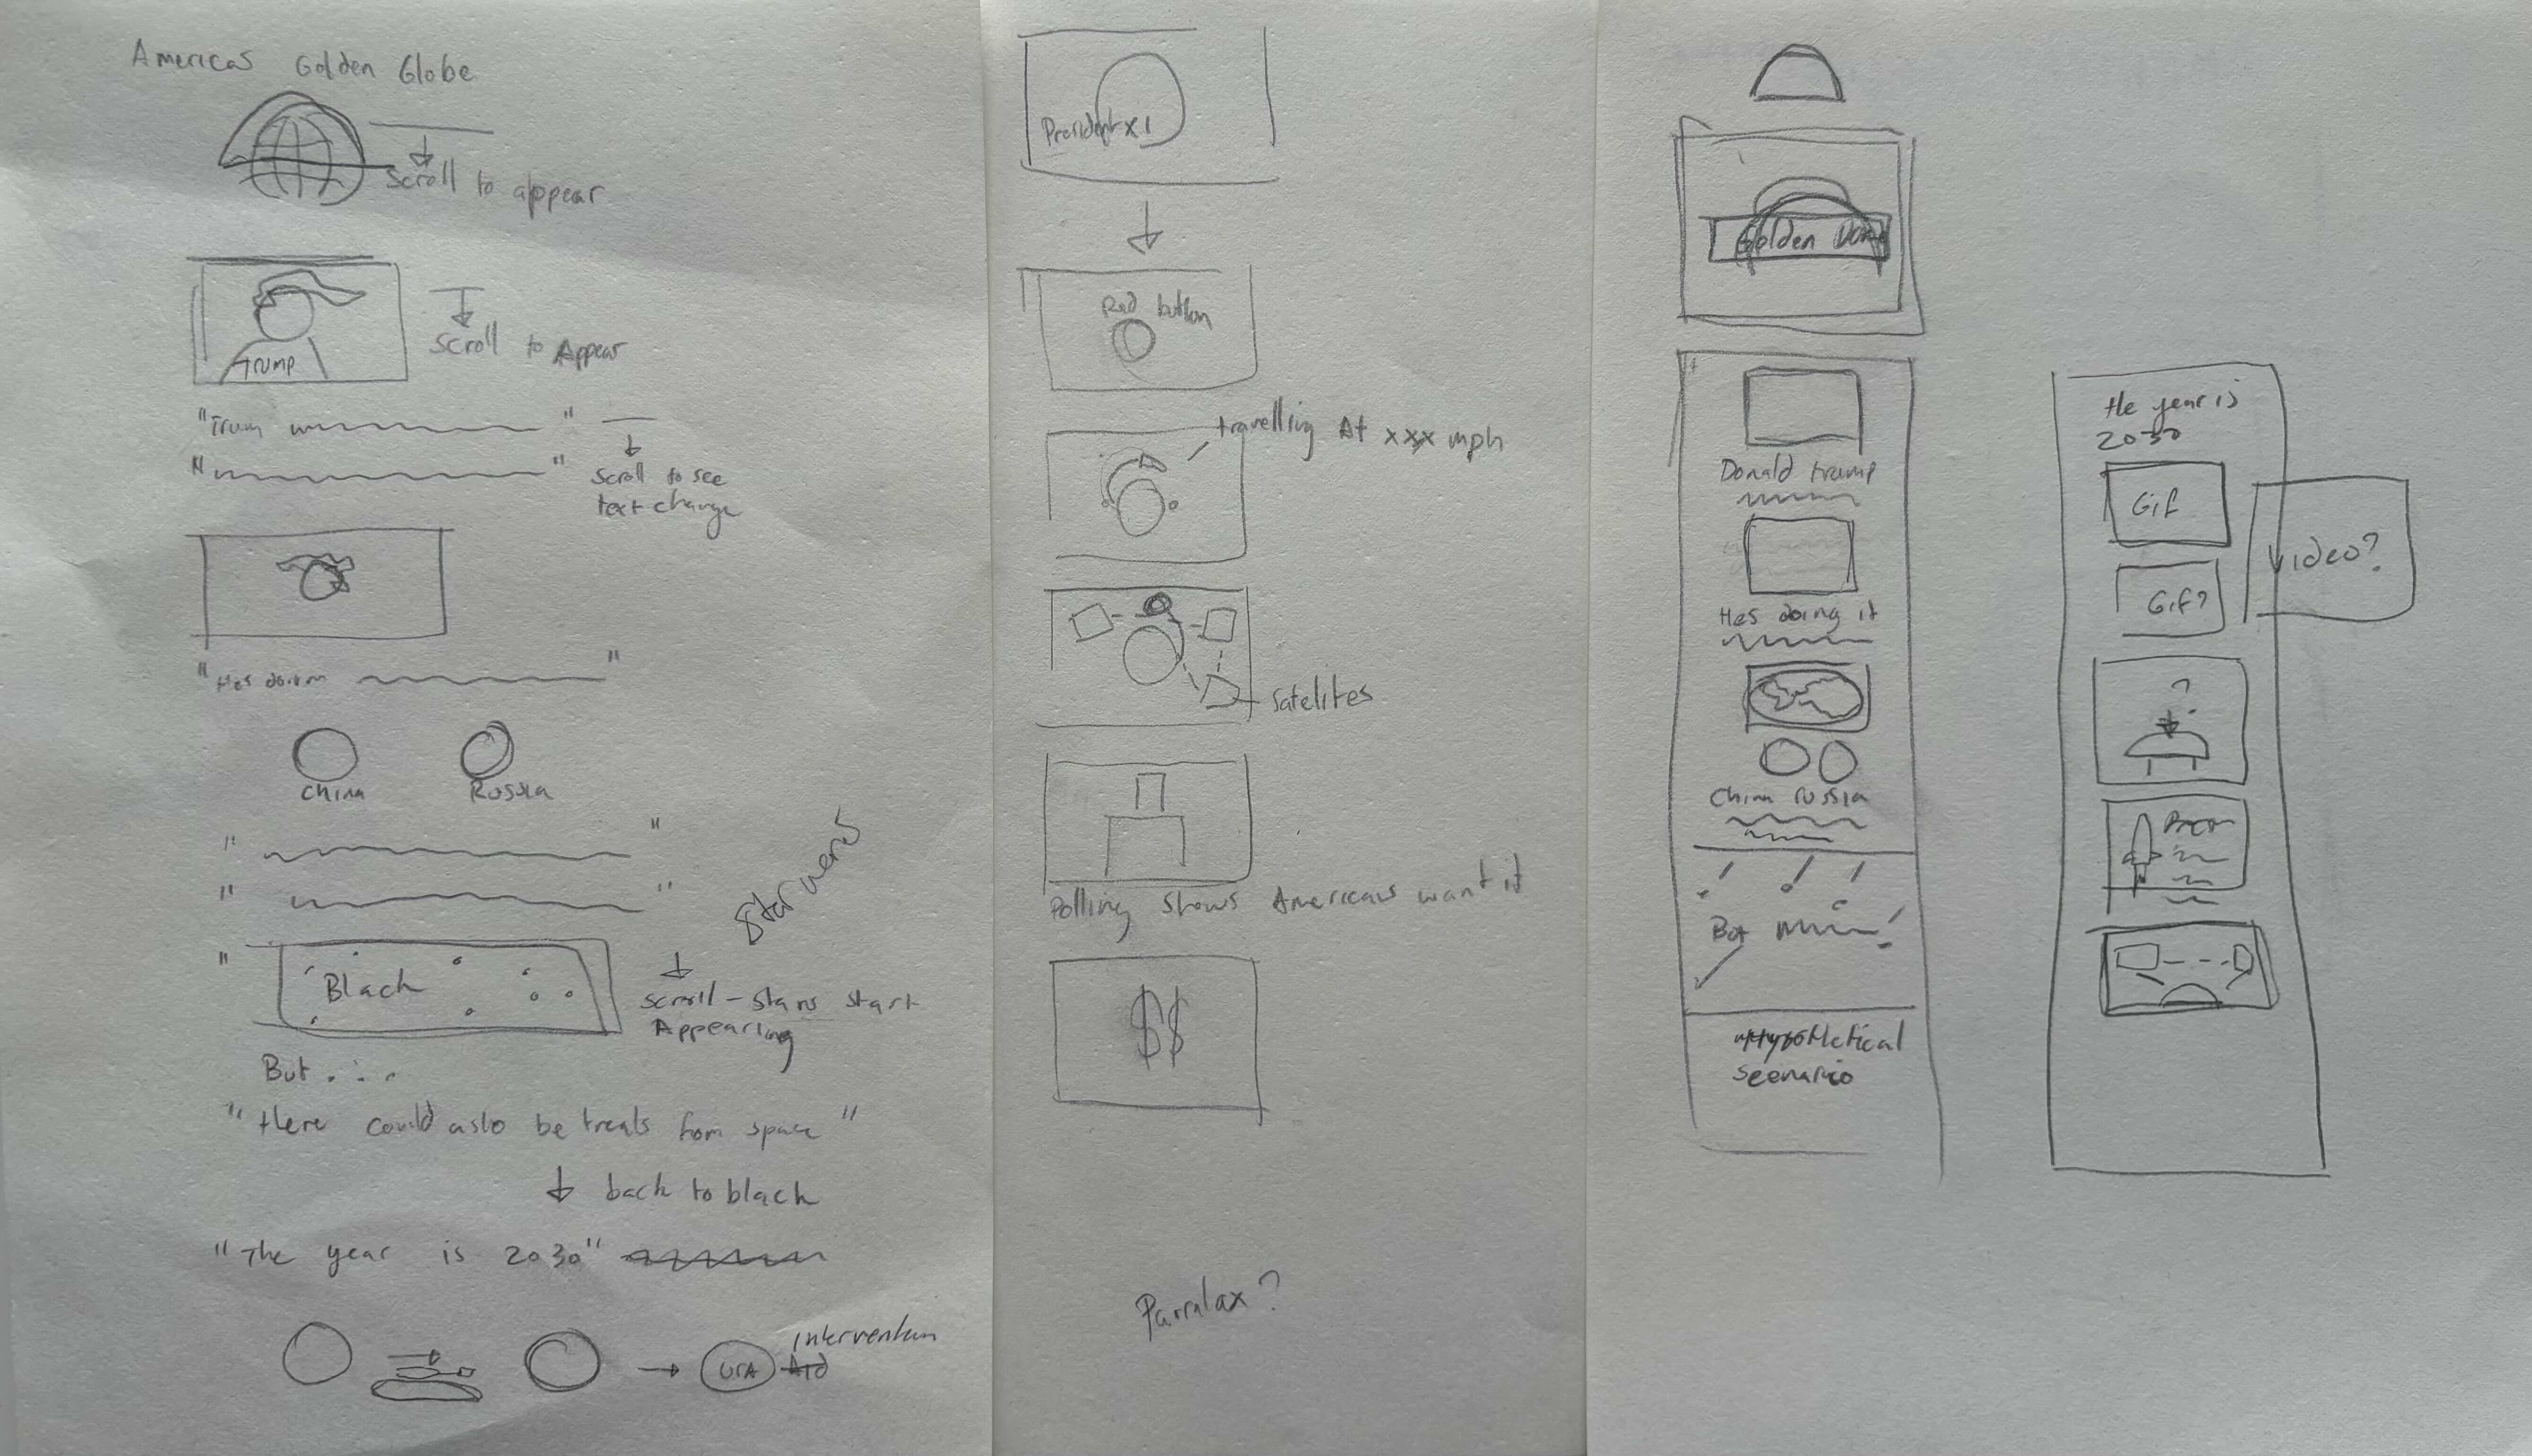 Americas Golden Globe
Scroll to appear
Trump
Scroll to Appear
"Trum "
" "
Scroll to see
text change
"Hes "
China
Russia
" "
" "
"
Star wars
Black
Scroll - Stars start
Appearing
But . . .
"there could aslo be treats from space"
back to black
"The year is 2030"
USA
intervention
President XI
Red button
travelling At xxx mph
Satelites
Polling shows Americans want it
$$
Parralax?
Golden Dome
Donald trump
Hes doing it
China russia
But
Hypothetical
Scenario
the year is
2030
Gif
Video?
Gif?
?